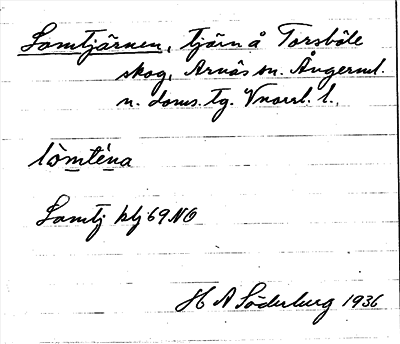 Lomtjärnen, tjärn å Torsböle
skog, Arnäs sn. Ångerml.
n. doms. tg. Vnorrl. l.
lòmténa
Lomtj blj 69 NO
H A Söderberg 1936